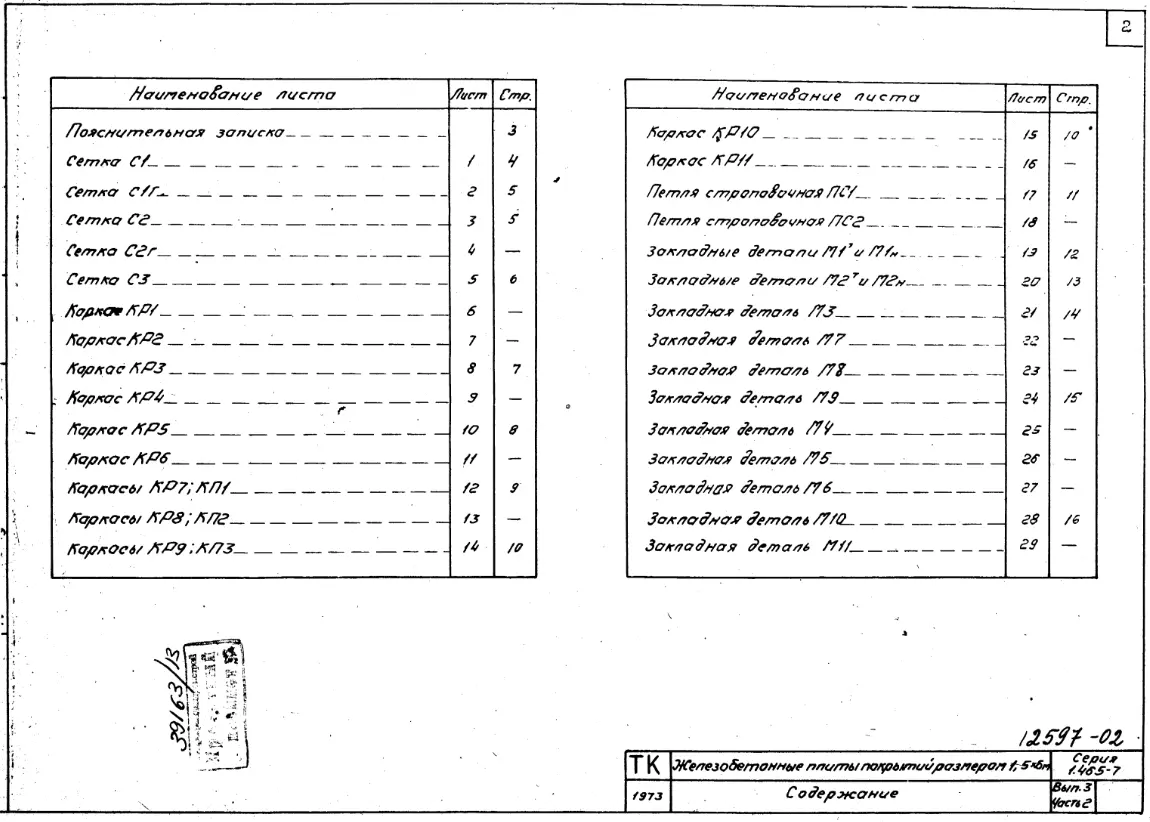 2
Наименование листа Лист Стр.
Пояснительная записка 3
Сетка С1 1 4
Сетка С1г 2 5
Сетка С2 3 5
Сетка С2г 4 —
Сетка С3 5 6
Каркас КР1 6 —
Каркас КР2 7 —
Каркас КР3 8 7
Каркас КР4 9 —
Каркас КР5 10 8
Каркас КР6 11 —
Каркасы КР7; КП1 12 9
Каркасы КР8; КП2 13 —
Каркасы КР9; КП3 14 10
Наименование листа Лист Стр.
Каркас КР10 15 10
Каркас КР11 16 —
Петля строповочная ПС1 17 11
Петля строповочная ПС2 18 —
Закладные детали М1т и М1н 19 12
Закладные детали М2т и М2н 20 13
Закладная деталь М3 21 14
Закладная деталь М7 22 —
Закладная деталь М8 23 —
Закладная деталь М9 24 15
Закладная деталь М4 25 —
Закладная деталь М5 26 —
Закладная деталь М6 27 —
Закладная деталь М10 28 16
Закладная деталь М11 29 —
39163/13
12597-02
ТК Железобетонные плиты покрытий размером 1,5×6м Серия 1.465-7
1973 Содержание Вып.3 Часть 2